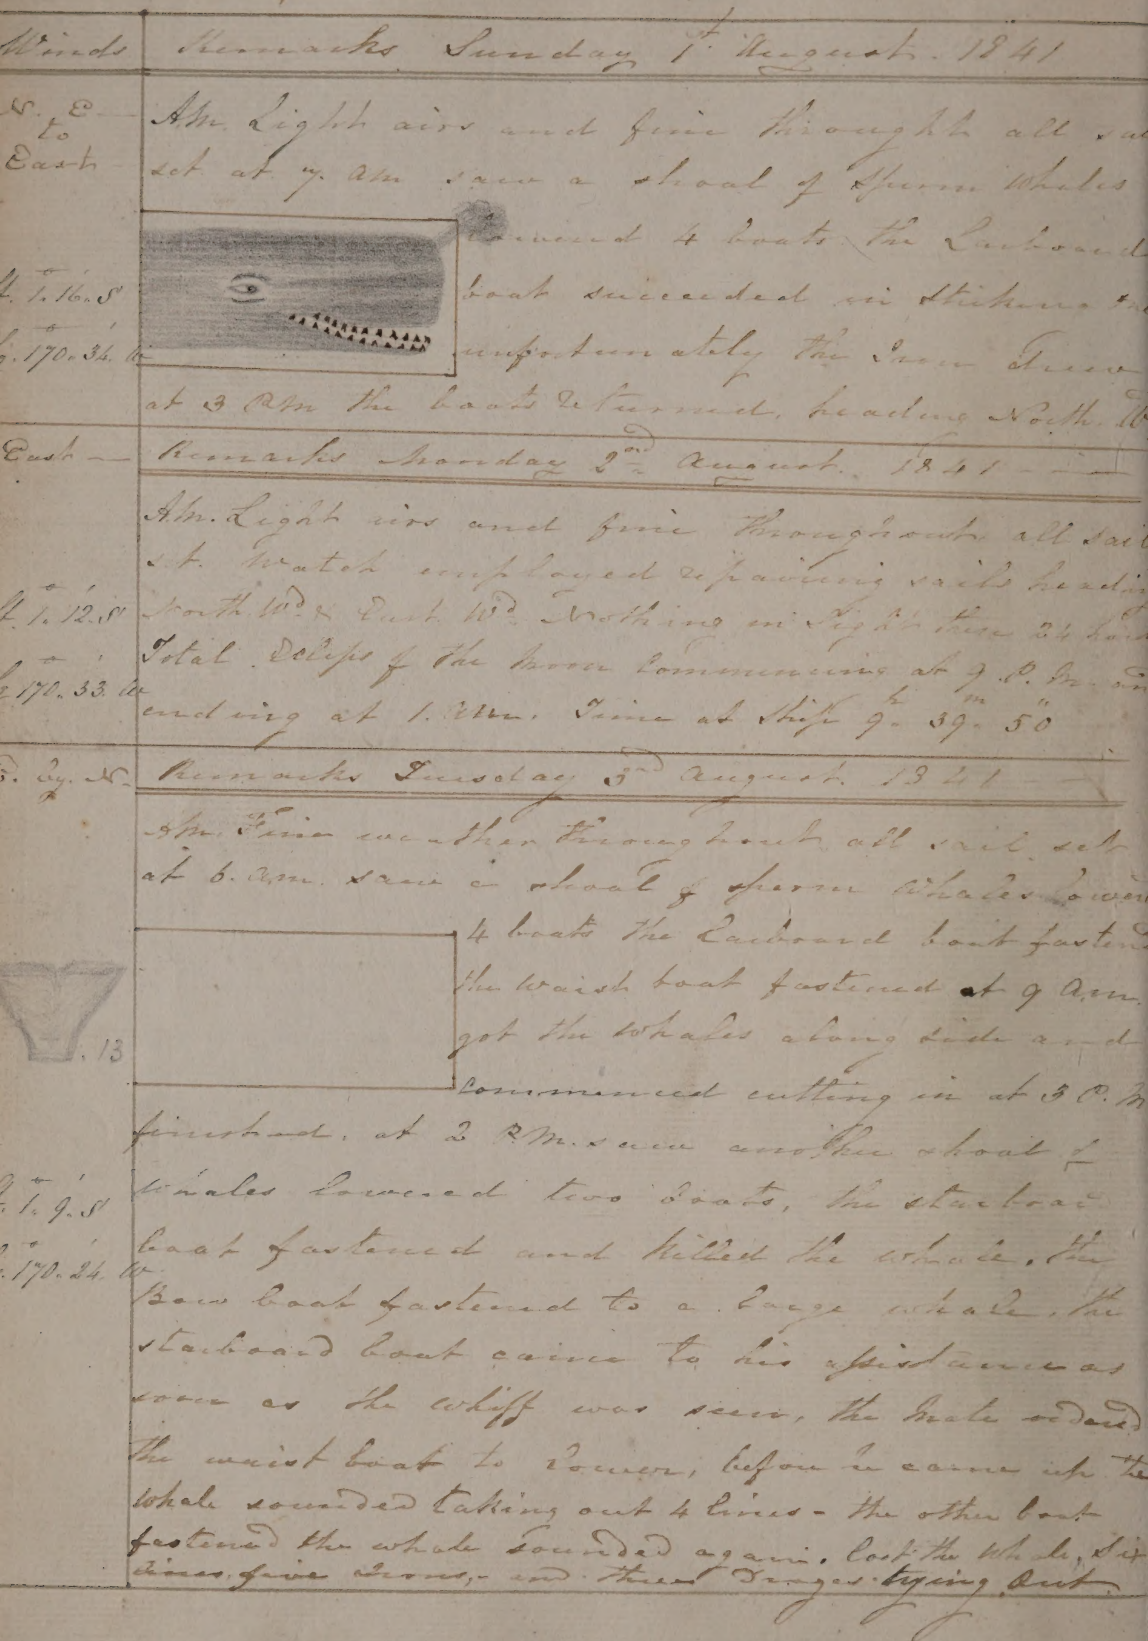 Winds Remarks Sunday 1st August. 1841
N. E
to
East
AM. Light airs and fine throught all sai
set at 7. AM saw a shoal of Sperm Whales
lowered 4 boats the Larboard
boat succeeded in Striking one
unfortunately the Iron Drew
at 3 P.M the boats returned, heading North. W
t. 1°. 16'. S
g. 170°. 34'. W
East Remarks Monday 2nd August. 1841
AM. Light airs and fine throughout, all sail
set. Watch employed repairing sails heading
North Wd. & East Wd. Nothing in Sight these 24 hours
Total Eclips of the Moon Commencing at 9. P. M. and
ending at 1. AM. Time at Ship 9h. 39m. 50"
t. 1°. 12'. S
g 170°. 33'. W
E. by. N. Remarks Tuesday 3rd August. 1841
AM. Fine weather throughout, all sail set
at 6. a.m. saw a shoal of sperm Whales lowered
4 boats the Larboard boat fastened
the waist boat fastened at 9 a.m.
got the whales along side and
commenced cutting in at 3 P. M
. 13
finished. at 2 P.M. saw another shoal of
whales lowered two boats, the starboard
boat fastened and killed the whale. the
Bow boat fastened to a large whale. the
starboard boat came to his assistance as
soon as the whiff was seen, the Mate ordered
the waist boat to lower, before he came up the
whale sounded taking out 4 lines - the other boat
fastened the whale sounded again. lost the whale, Six
lines, five Irons, - and three Drugs. trying Out.
t. 1°. 9'. S
g. 170°. 24'. W